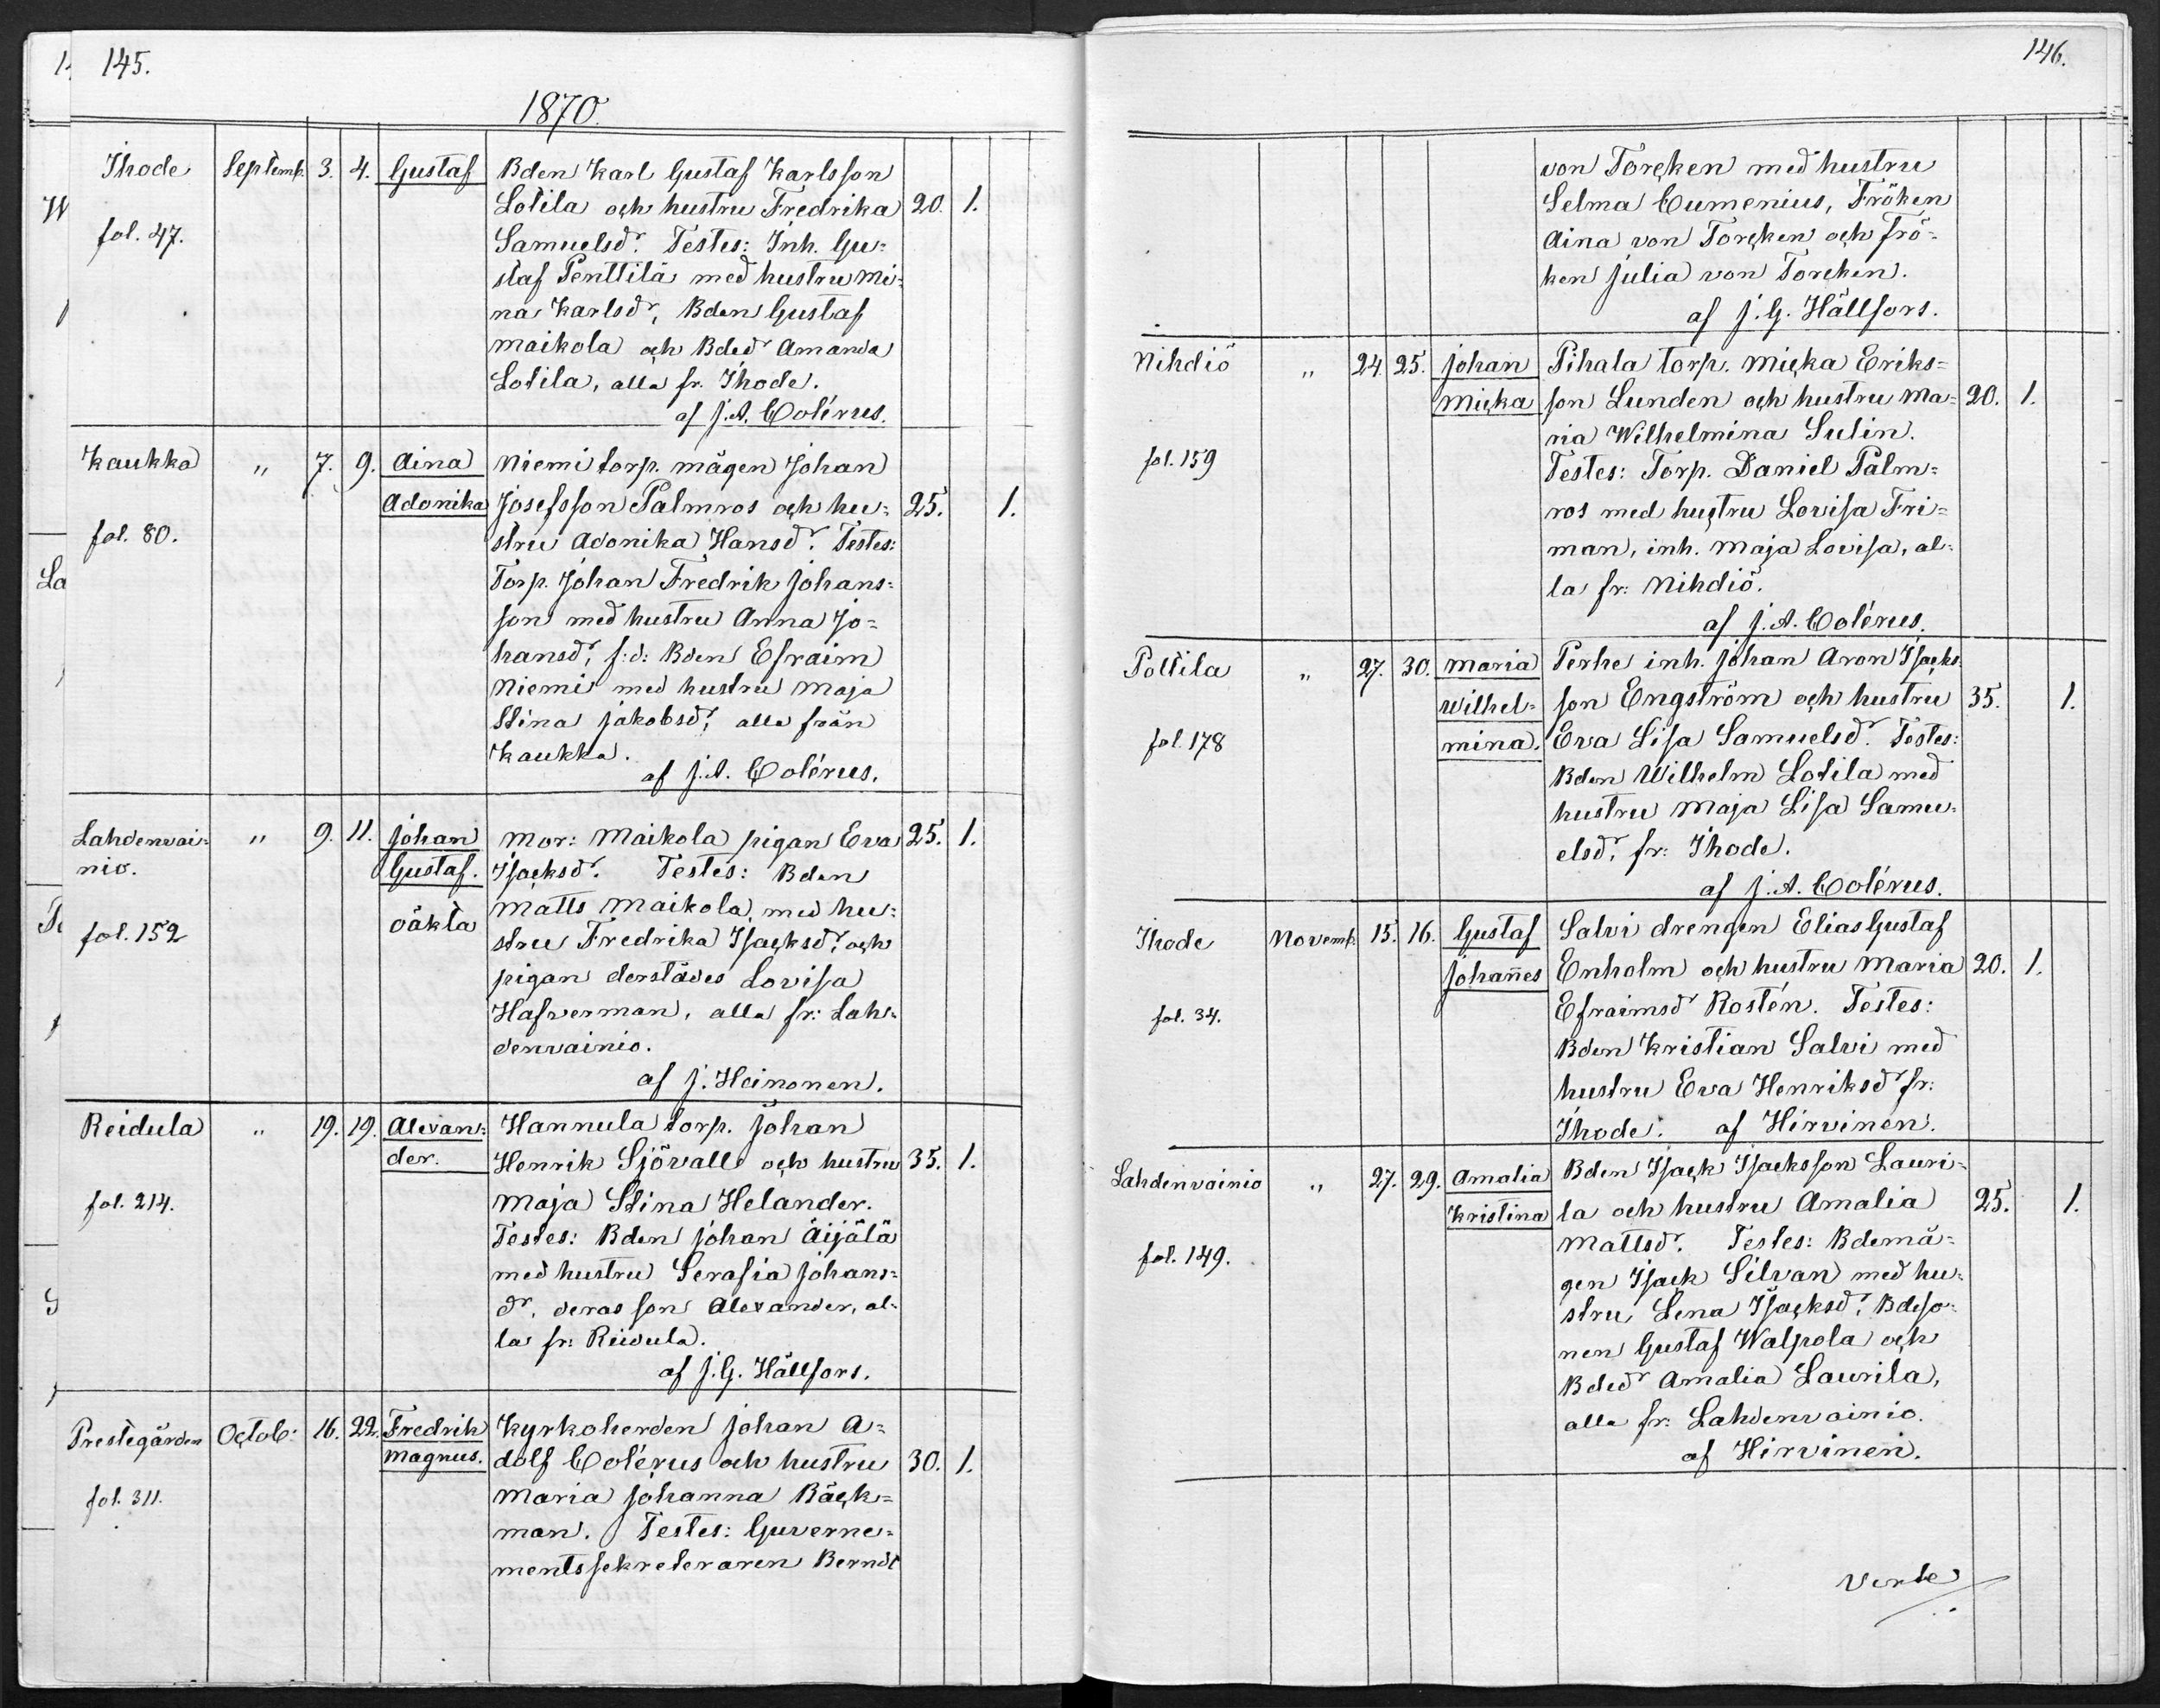 145.
1870.
Ihode Septemb. 3. 4. Gustaf Bden Karl Gustaf Karlsson
Lotila och hustru Fredrika 20. 1.
fol. 47. Samuelsdr. Testes: Inh. Gu-
staf Penttilä med hustru Mi-
na Karlsdr, Bden Gustaf
Maikola och Bdedr Amanda
Lotila, alla fr. Ihode.
af J. A. Colérus.
Kaukka " 7. 9. Aina Niemi torp. mågen Johan
Adonika Josefsson Palmros och hu- 25. 1.
fol. 80. stru Adonika Hansdr. Testes:
Torp. Johan Fredrik Johans-
son med hustru Anna Jo-
hansdr, f:d: Bden Efraim
Niemi med hustru Maja
Stina Jakobsdr, alla från
Kaukka.
af J. A. Colérus.
Lahdenvai- " 9. 11. Johan Mor: Maikola pigan Eva 25. 1.
nio. Gustaf. Isacksdr. Testes: Bden
oäkta Matts Maikola med hu-
fol. 152 stru Fredrika Isacksdr, och
pigan derstädes Lovisa
Hafverman, alla fr: Lah-
denvainio.
af J. Heinonen.
Reidula " 19. 19. Alexan- Hannula torp. Johan
der. Henrik Sjövall och hustru 35. 1.
fol. 214. Maja Stina Helander.
Testes: Bden Johan Äijälä
med hustru Serafia Johans-
dr, deras son Alexander, al-
la fr: Reidula.
af J. G. Hällfors.
Prestegården Octob: 16. 22. Fredrik Kyrkoherden Johan A-
Magnus. dolf Colérus och hustru 30. 1.
fol. 311. Maria Johanna Bäck-
man. Testes: Guverne-
mentssekreteraren Berndt
146.
von Torcken med hustru
Selma Cumenius, Fröken
Aina von Torcken och Frö-
ken Julia von Torcken.
af J. G. Hällfors.
Nihdiö " 24. 25. Johan Pihala torp. Micka Eriks-
Micka son Lunden och hustru Ma- 20. 1.
ria Wilhelmina Sulin.
fol. 159 Testes: Torp. Daniel Palm-
ros med hustru Lovisa Fri-
man, inh. Maja Lovisa, al-
la fr: Nihdiö.
af J. A. Colérus.
Poltila " 27. 30. Maria Perhe inh. Johan Aron Isacks-
Wilhel- son Engström och hustru 35. 1.
fol. 178 mina. Eva Lisa Samuelsdr. Testes:
Bden Wilhelm Lotila med
hustru Maja Lisa Samu-
elsdr, fr: Ihode.
af J. A. Colérus.
Ihode Novemb. 15. 16. Gustaf Salvi drengen Elias Gustaf
Johañes Enholm och hustru Maria 20. 1.
fol. 34. Efraimsdr Rostén. Testes:
Bden Kristian Salvi med
hustru Eva Henriksdr fr:
Ihode. af Hirvinen.
Lahdenvainio " 27. 29. Amalia Bden Isack Isacksson Lauri-
Kristina la och hustru Amalia 25. 1.
fol. 149. Mattsdr. Testes: Bdemå-
gen Isack Silvan med hu-
stru Lena Isacksdr, Bdeso-
nen Gustaf Walpola och
Bdedr Amalia Laurila,
alla fr: Lahdenvainio.
af Hirvinen.
Verte